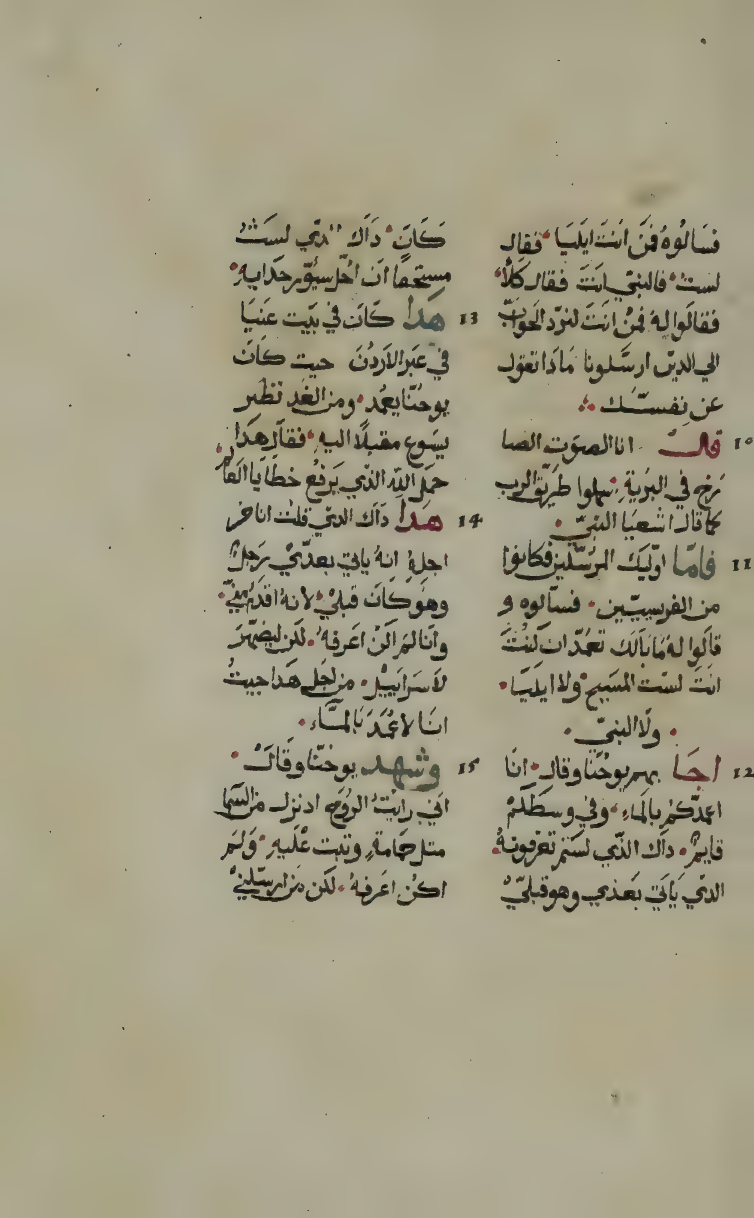 فسالوه فمن انت ايليا فقال
لست فالنبي انت فقال كلا
فقالوا له فمن انت لنرد الجواب
الي الدين ارسلونا مادا تقول
عن نفسك
10 قال انا الصوت الصا
رخ في البرية سهلوا طريق الرب
كما قال اشعيا النبي
11 فاما اوليك المرسلين فكانوا
من الفريسيين فسالوه و
قالوا له ما بالك تعمد ان كنت
انت لست المسيح ولا ايليا
ولا النبي
12 اجا بهم يوحنا وقال انا
اعمدكم بالماء وفي وسطكم
قايم داك الدي لستم تعرفونه
الدي ياتي بعدي وهو قبلي
كان داك الدي لست
مستحقا ان احل سيور حدايه
13 هدا كان في بيت عنيا
في عبر الاردن حيت كان
يوحنا يعمد ومن الغد نظر
يسوع مقبلا اليه فقال هدا
حمل الله الدي يرفع خطايا العالم
14 هدا داك الدي قلت انا من
اجله انه ياتي بعدي رجل
وهو كان قبلي لانه اقدم مني
وانا لم اكن اعرفه لكن ليضهر
لاسراييل من اجل هدا جيت
انا لاعمد بالماء
15 وشهد يوحنا وقال
اني رايت الروح ادنزل من السما
متل حمامة وتبت عليه ولم
اكن اعرفه لكن من ارسلني